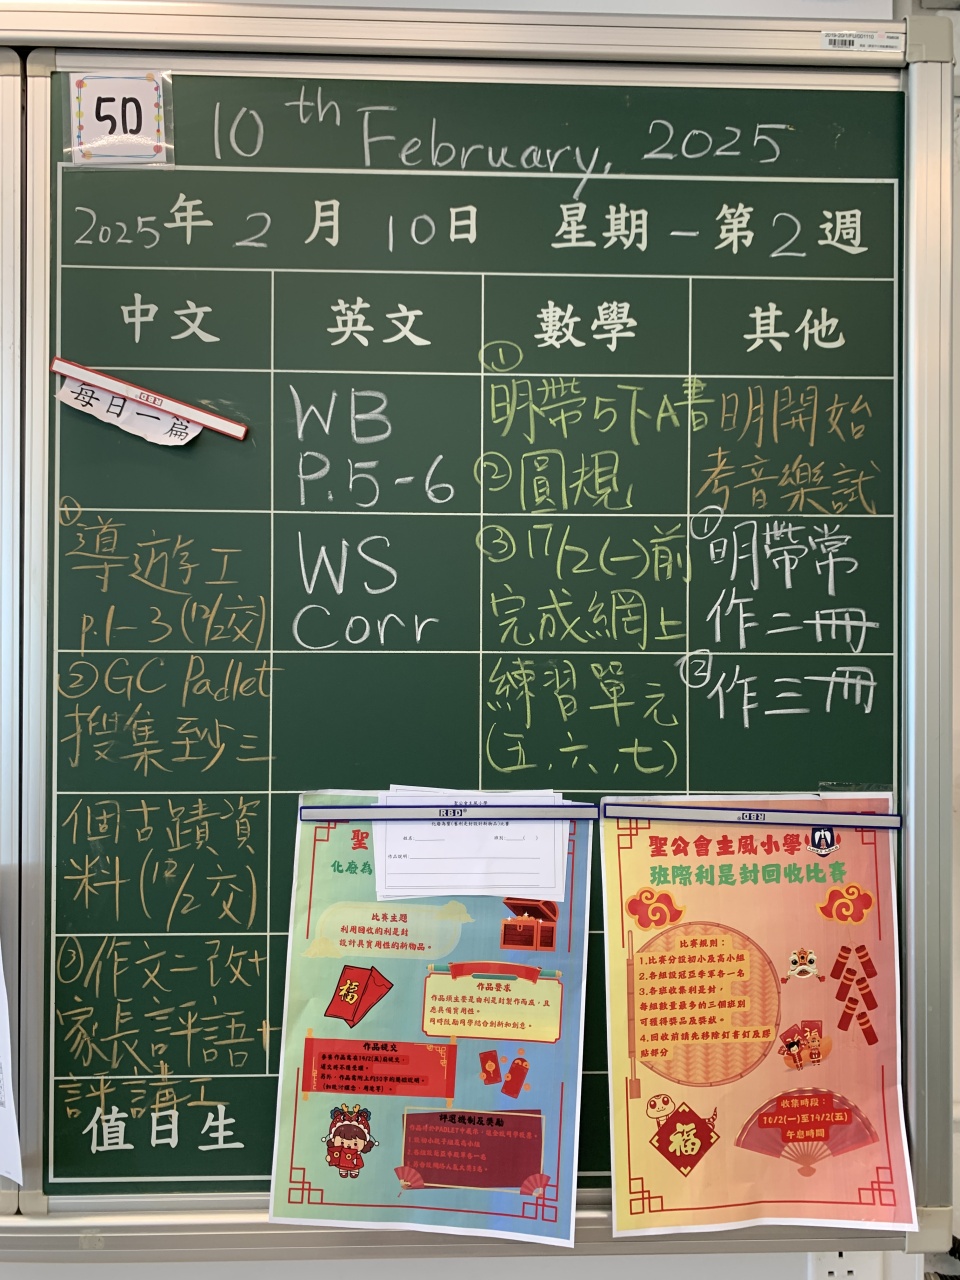 5D
10th February, 2025
2025年2月10日 星期一 第2週
中文
英文
數學
其他
每日一篇
①導遊工
p.1-3(12/2交)
②GC Padlet
搜集至少三
個古蹟資
料(12/2交)
③作文二改+
家長評語+
評講工
值日生
WB
P.5-6
WS
Corr
①
明帶5下A書
②圓規
③17/2(一)前
完成網上
練習單元
(五、六、七)
明開始
考音樂試
①明帶常
作二冊
②作三冊
RBD
聖公會主風小學
姓名:
班別:
作品說明:
聖
化廢為
比賽主題
利用回收的利是封
設計具實用性的新物品。
作品要求
作品須主要是由利是封製作而成,且
應具備實用性。
同時鼓勵同學結合創新和創意。
作品提交
評選機制及獎勵
福
RBD
聖公會主風小學
班際利是封回收比賽
比賽規則:
1.比賽分設初小及高小組
2.各組設冠亞季軍各一名
3.各班收集利是封,
每組數量最多的三個班別
可獲得獎品及獎狀。
4.回收前請先移除釘書釘及膠
貼部分
福
收集時段:
10/2(一)至14/2(五)
午息時間